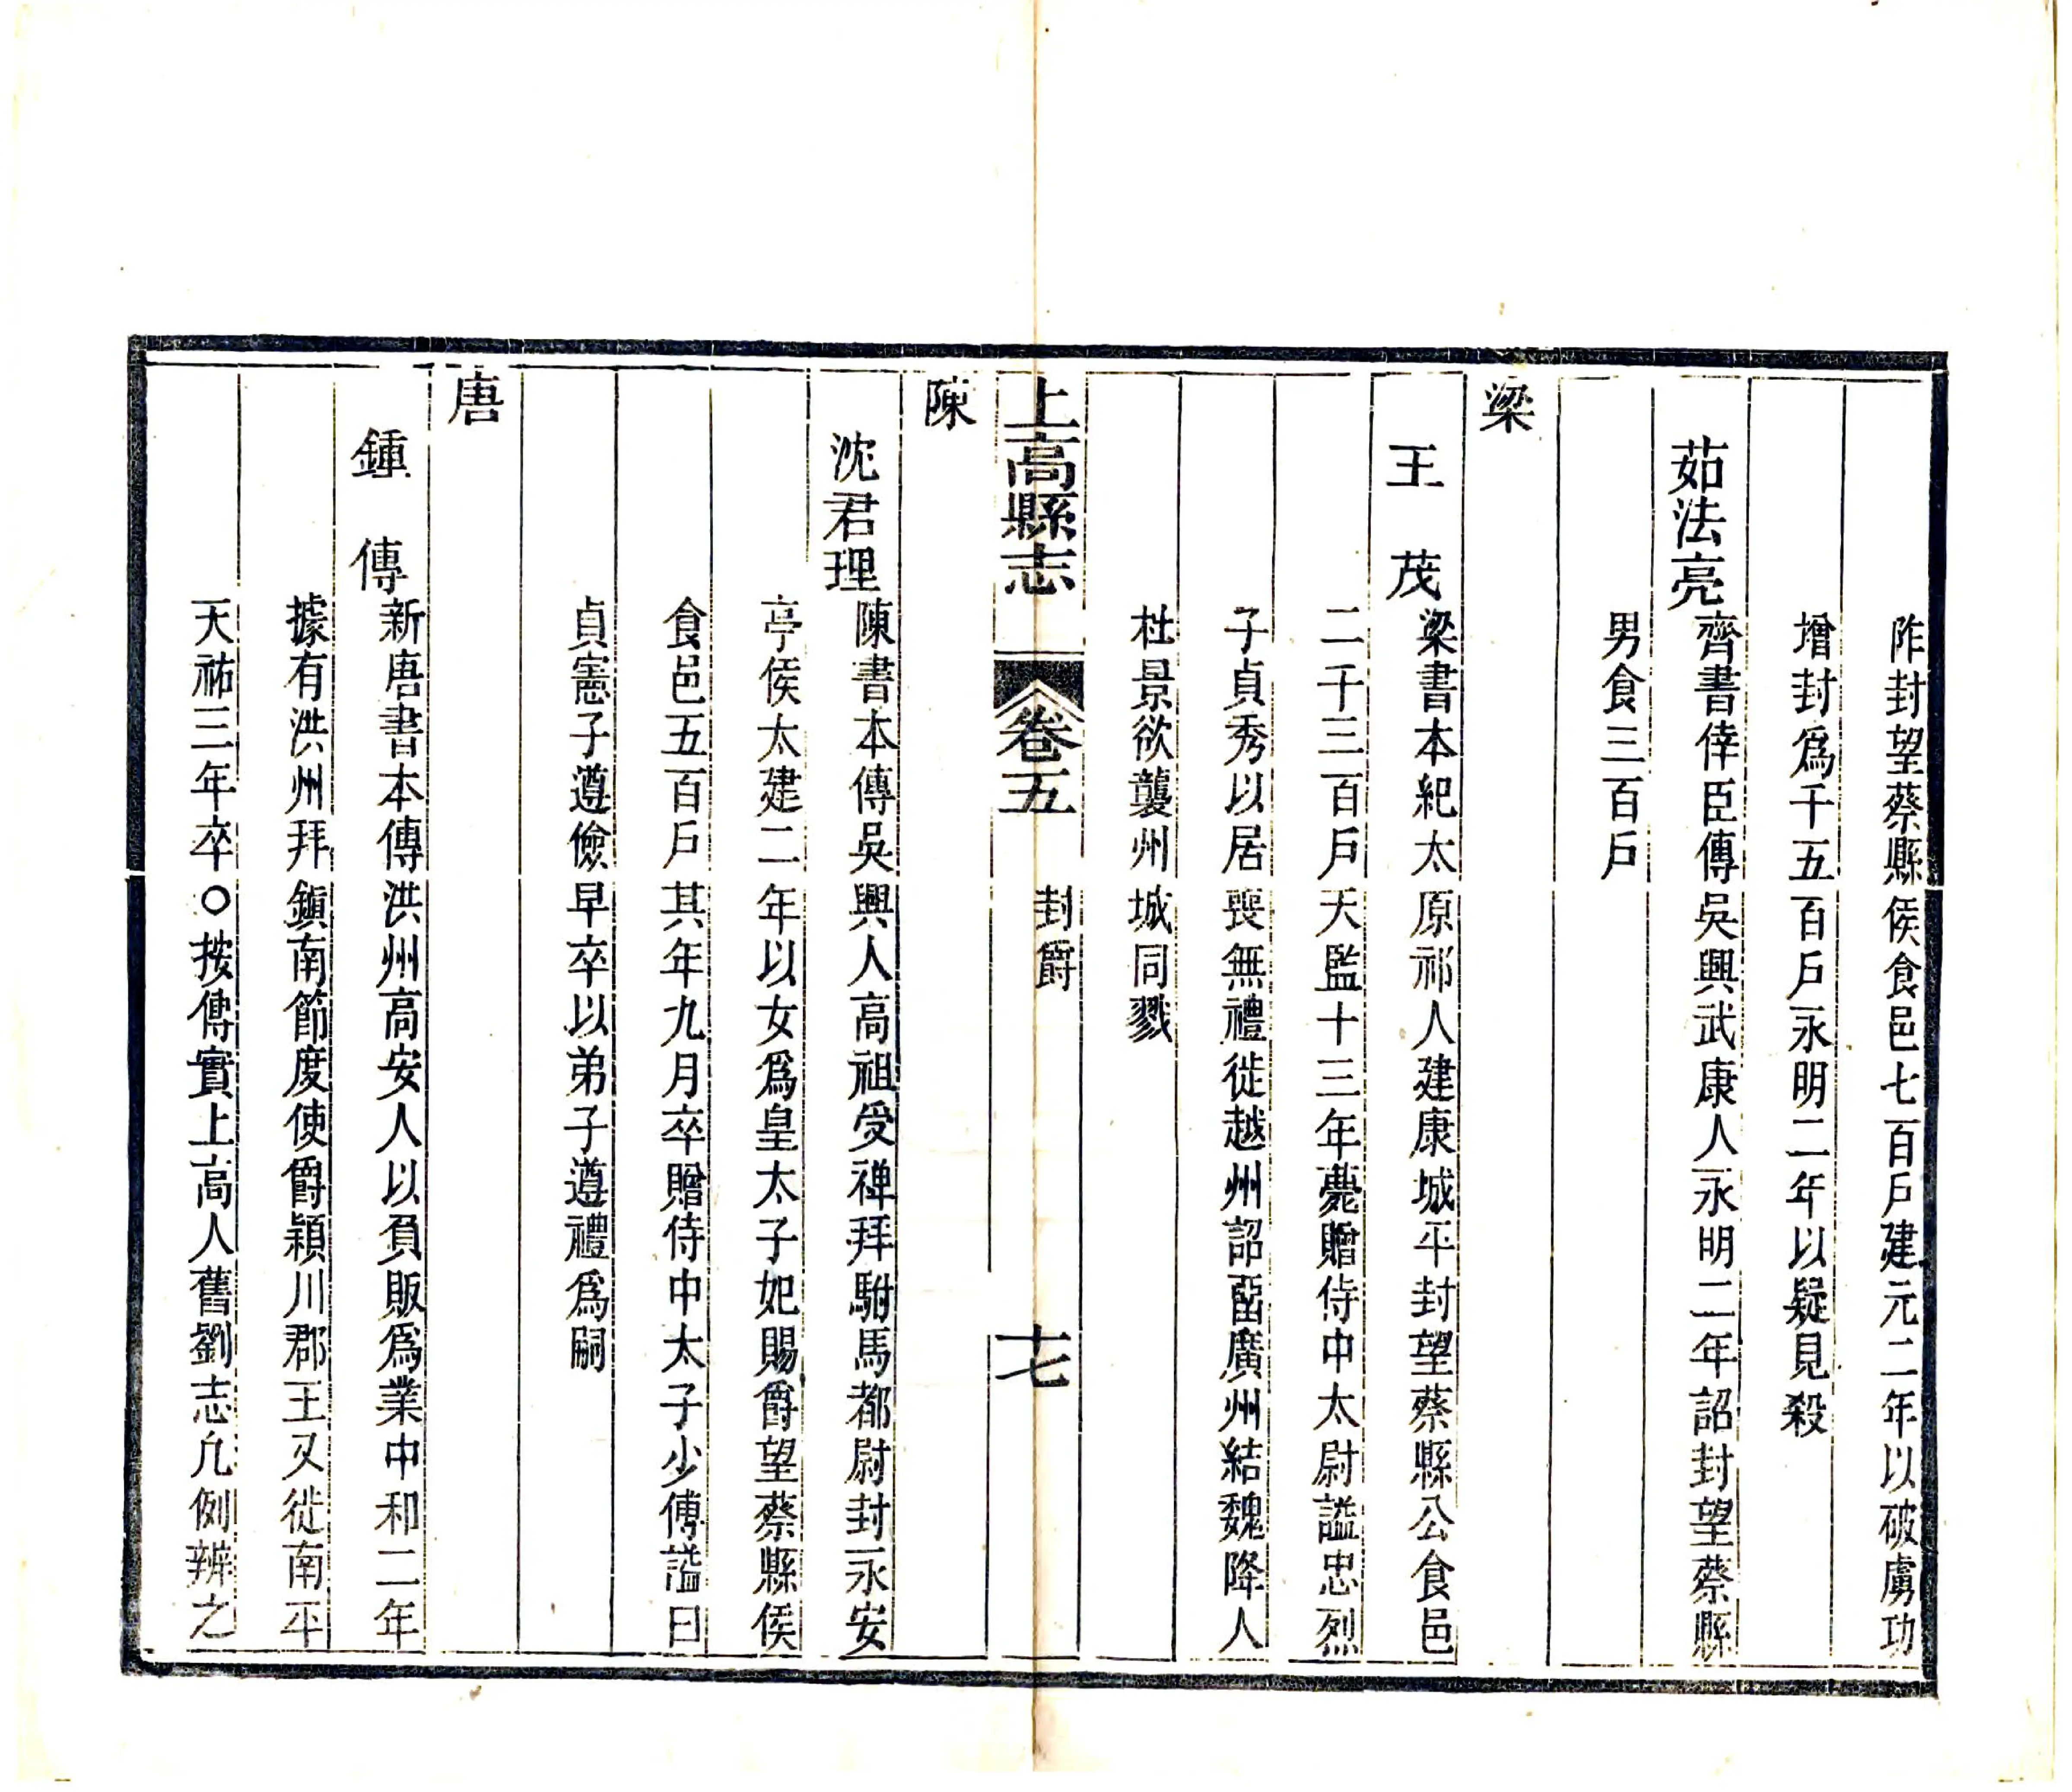 阼封望蔡縣侯食邑七百戶建元二年以破虜功
增封爲千五百戶永明二年以疑見殺
茹法亮齊書倖臣傳吳興武康人永明二年詔封望蔡縣
男食三百戶
梁
王茂梁書本紀太原祁人建康城平封望蔡縣公食邑
二千三百戶天監十三年薨贈侍中太尉謚忠烈
子貞秀以居喪無禮徙越州詔畱廣州結魏降人
杜景欲襲州城同戮
上高縣志 卷五 封爵 十七
陳
沈君理陳書本傳吳興人高祖受禅拜駙馬都尉封永安
亭侯太建二年以女爲皇太子妃賜爵望蔡縣侯
食邑五百戶其年九月卒贈侍中太子少傅謚曰
貞憲子遵儉早卒以弟子遵禮爲嗣
唐
鍾傳新唐書本傳洪州高安人以負販爲業中和二年
據有洪州拜鎮南節度使爵潁川郡王又徙南平
天祐三年卒○按傳實上高人舊劉志凢例辨之